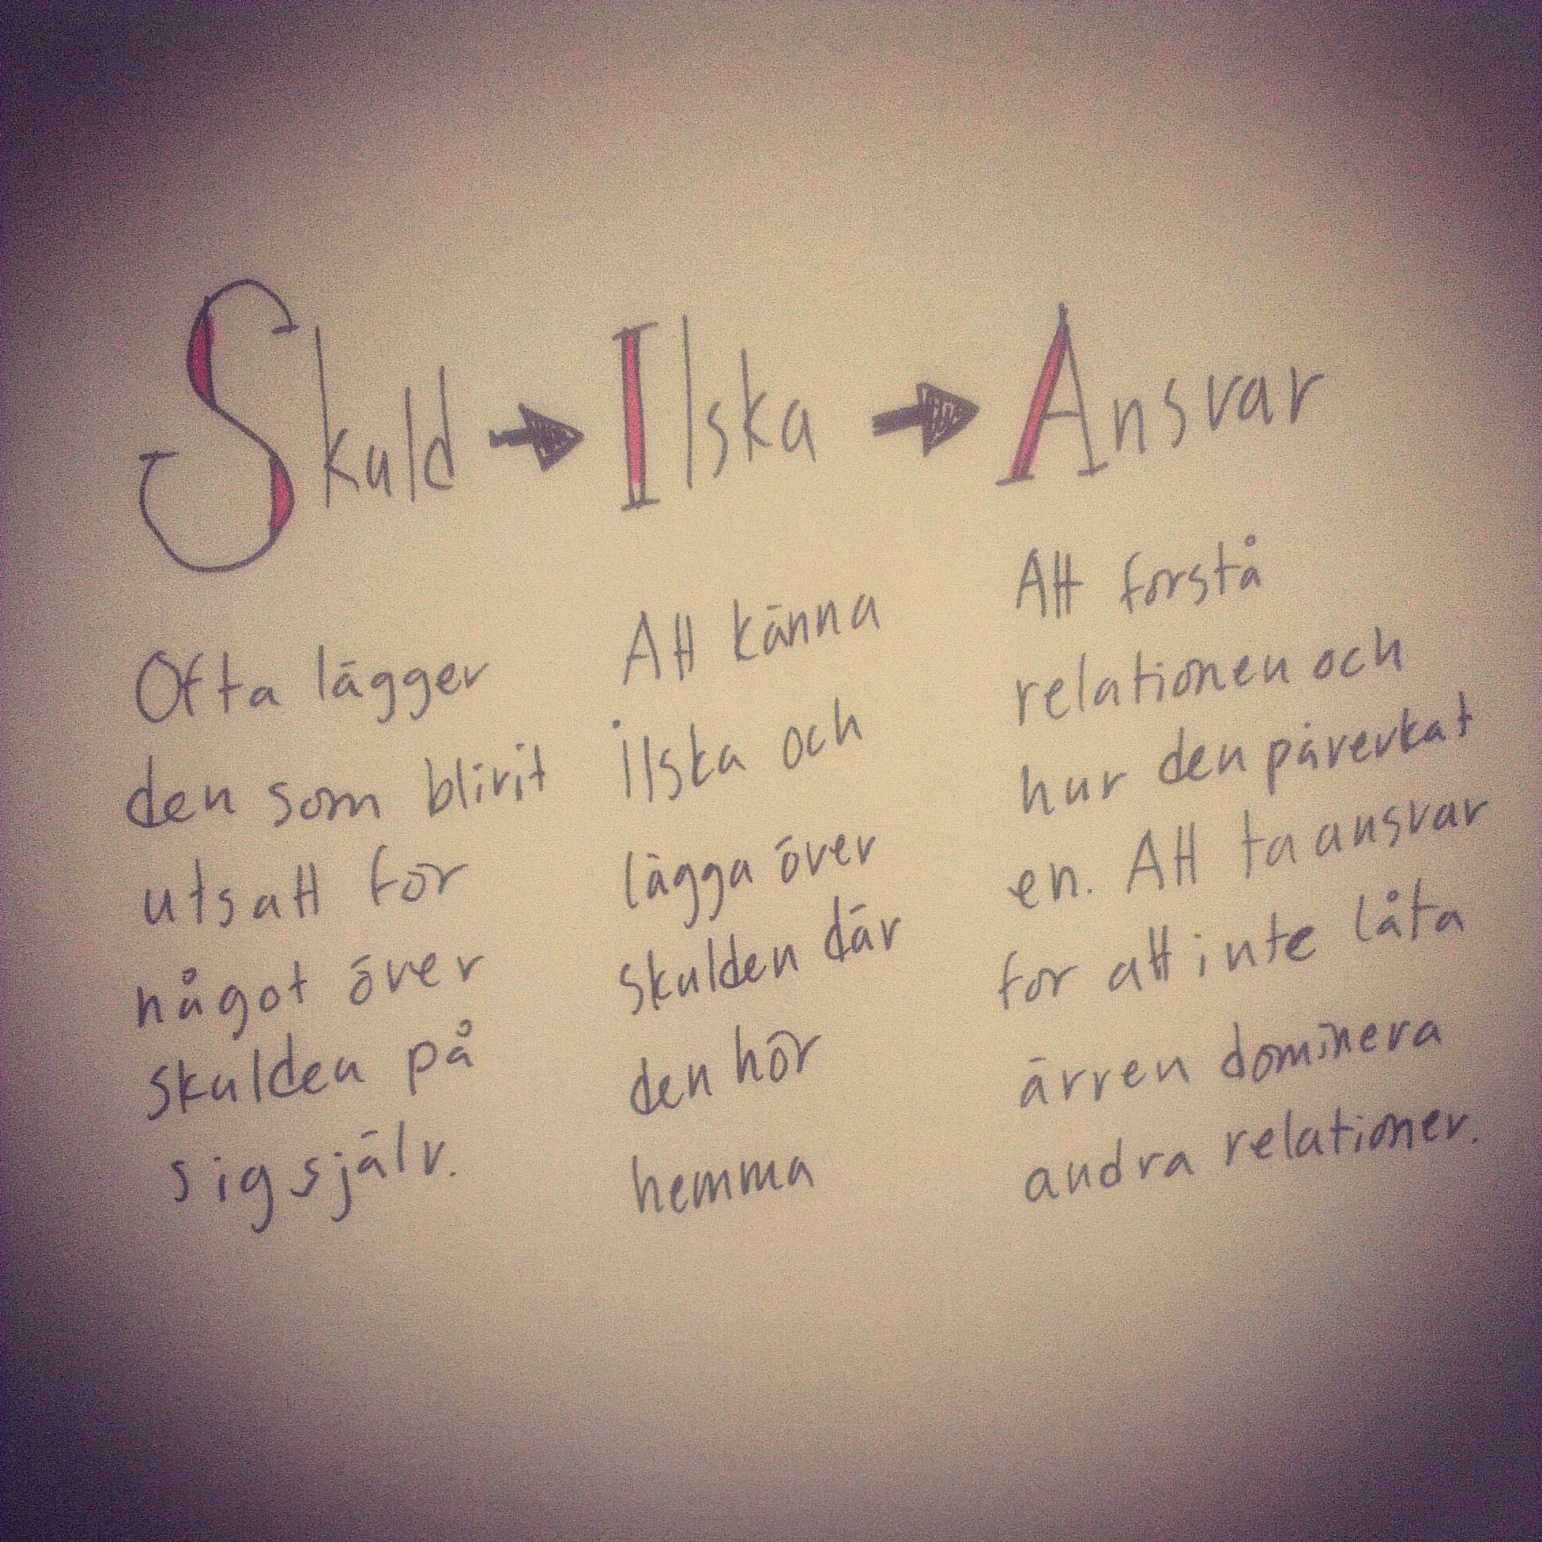 Skuld → Ilska → Ansvar
Ofta lägger
den som blivit
utsatt för
något över
skulden på
sig själv.
Att känna
ilska och
lägga över
skulden där
den hör
hemma
Att förstå
relationen och
hur den påverkat
en. Att ta ansvar
för att inte låta
ärren dominera
andra relationer.